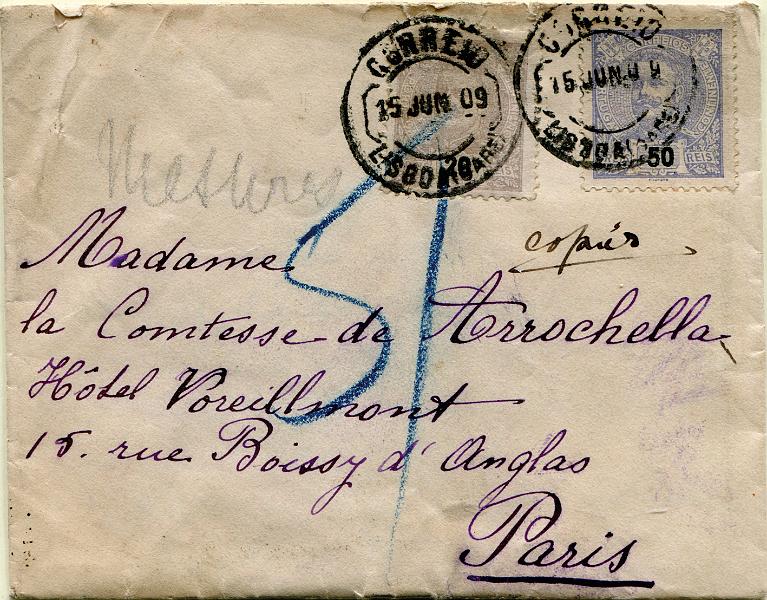 CORREIO
15 JUN. 09
LISBOA
CORREIO
15 JUN. 09
CORREIOS
50 REIS
51
Madame
la Comtesse de Arrochella
Hôtel Voreillmont
15. rue Boissy d'Anglas
Paris